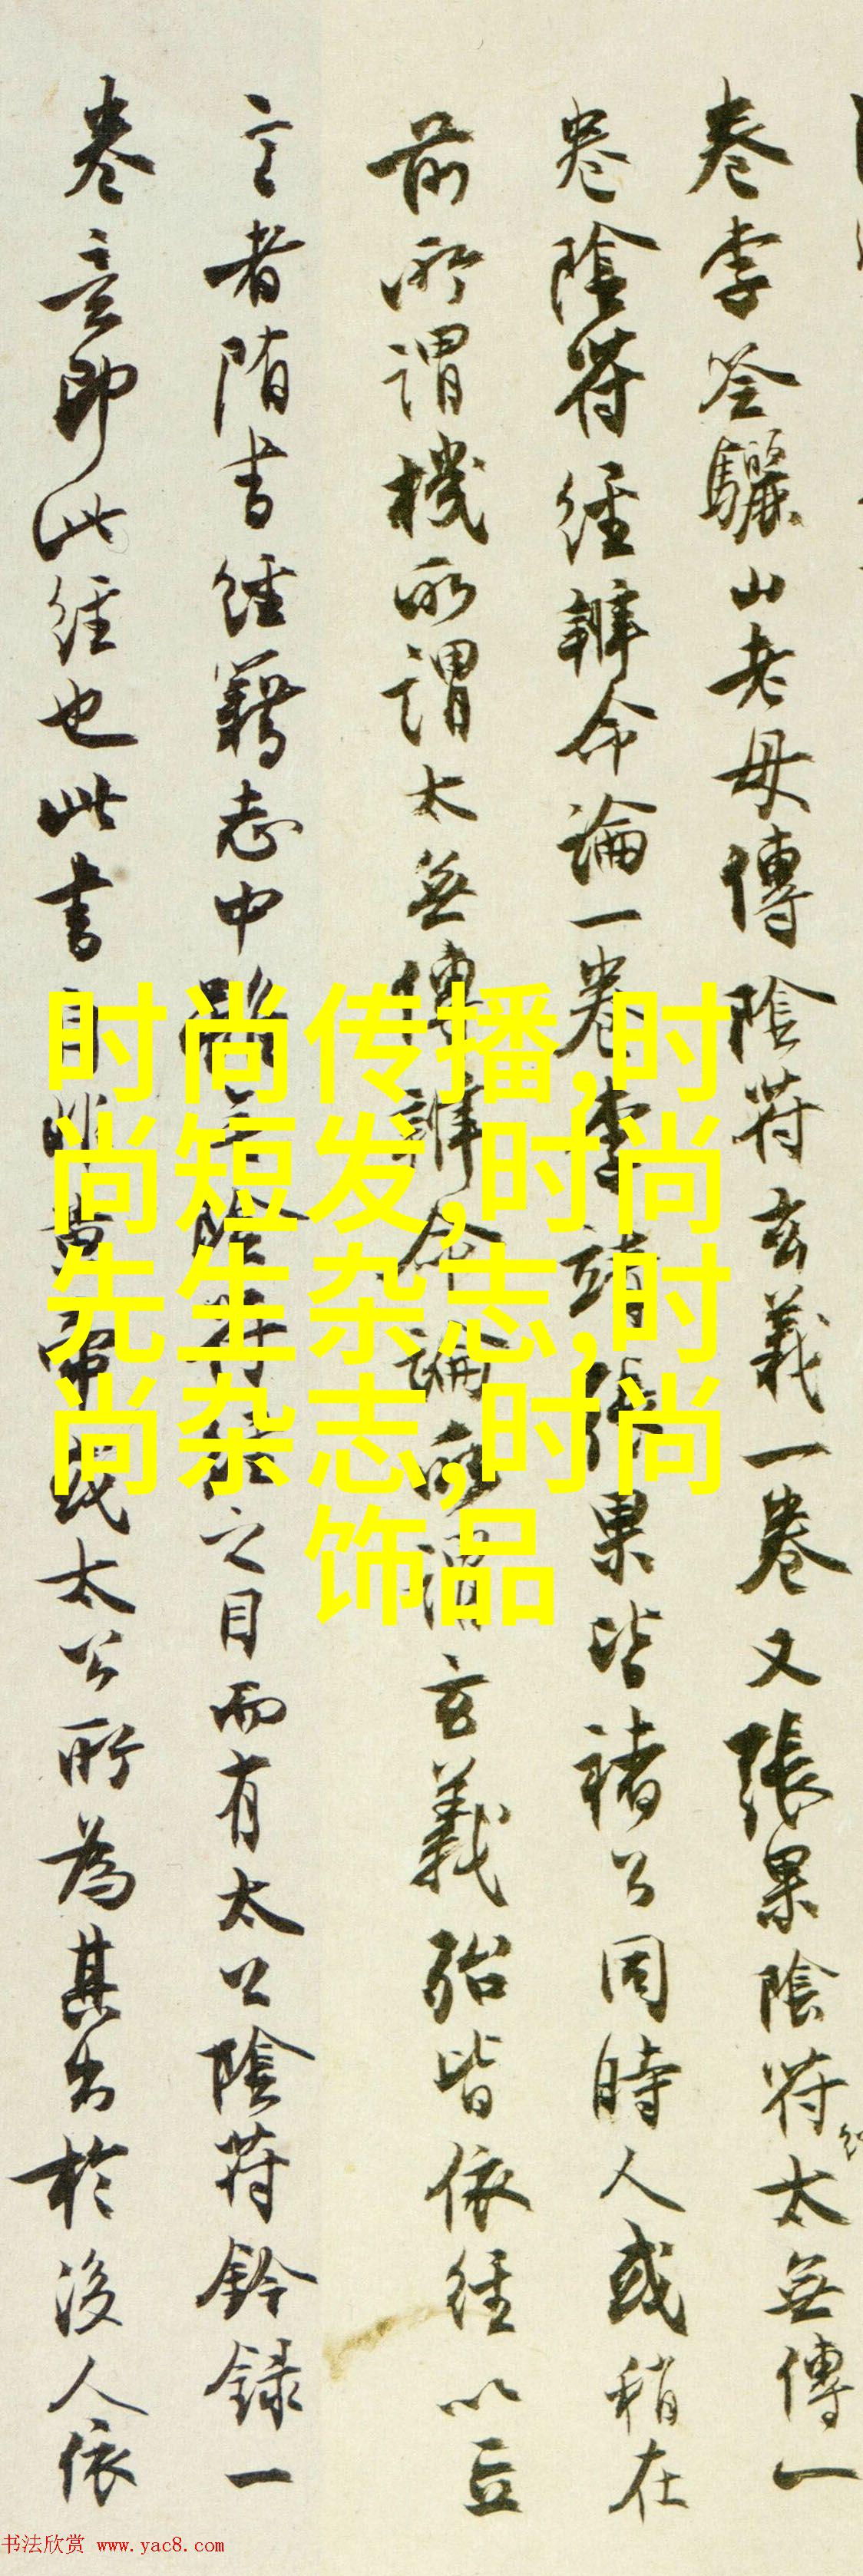 卷李筌驪山老母傳陰符玄義一卷又張果陰符太無傳一
卷陰符經辨命論一卷李靖張果皆褚公同時人或稍在
前所謂機所謂太無傳辨命論所謂玄義殆皆依經以立
言者隋書經籍志中雖無陰符經之目而有太公陰符鈐録一
卷意即此經也此書自非黃帝或太公所為其出於後人依
时尚传播,时
尚短发,时尚
先生杂志,时
尚杂志,时尚
饰品
书法欣赏 www.yac8.com